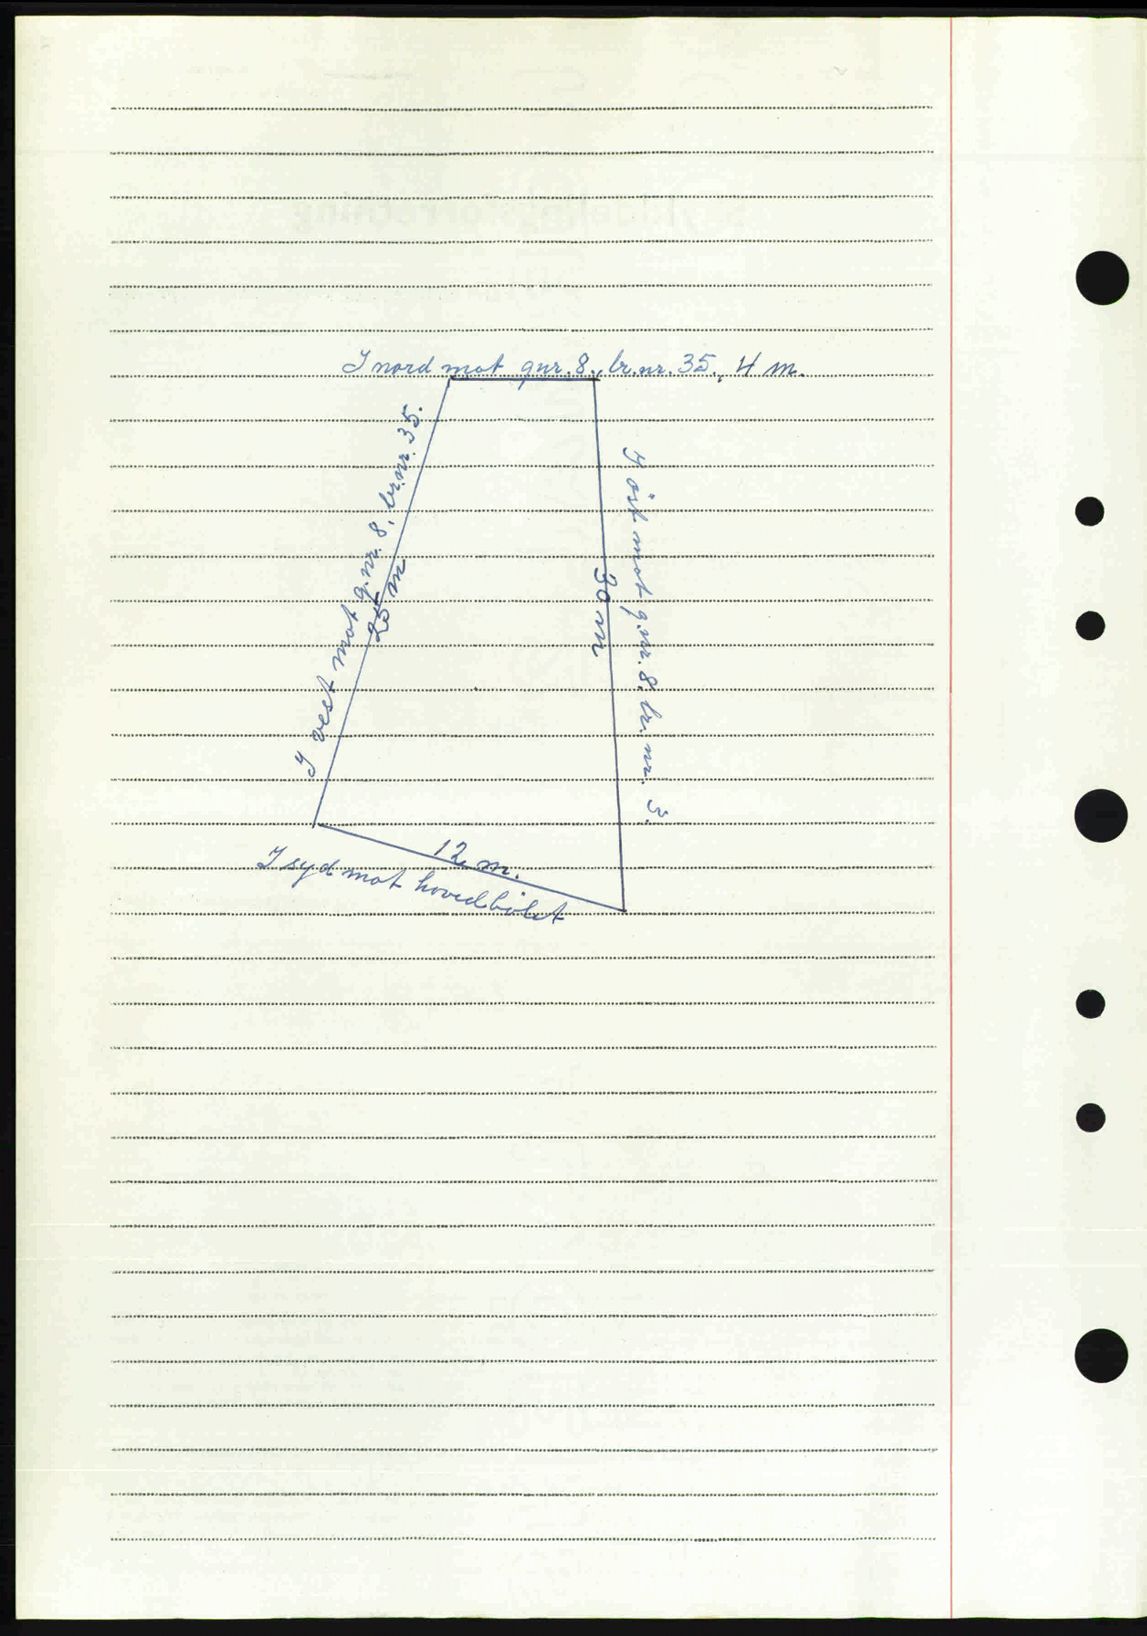 I nord mot gnr. 8, br.nr. 35., 4 m.
I vest mot g.nr. 8, br.nr. 35.
25 m
I øst mot g.nr. 8, br.nr. 3.
30 m
12 m.
I syd mot hovedbølet